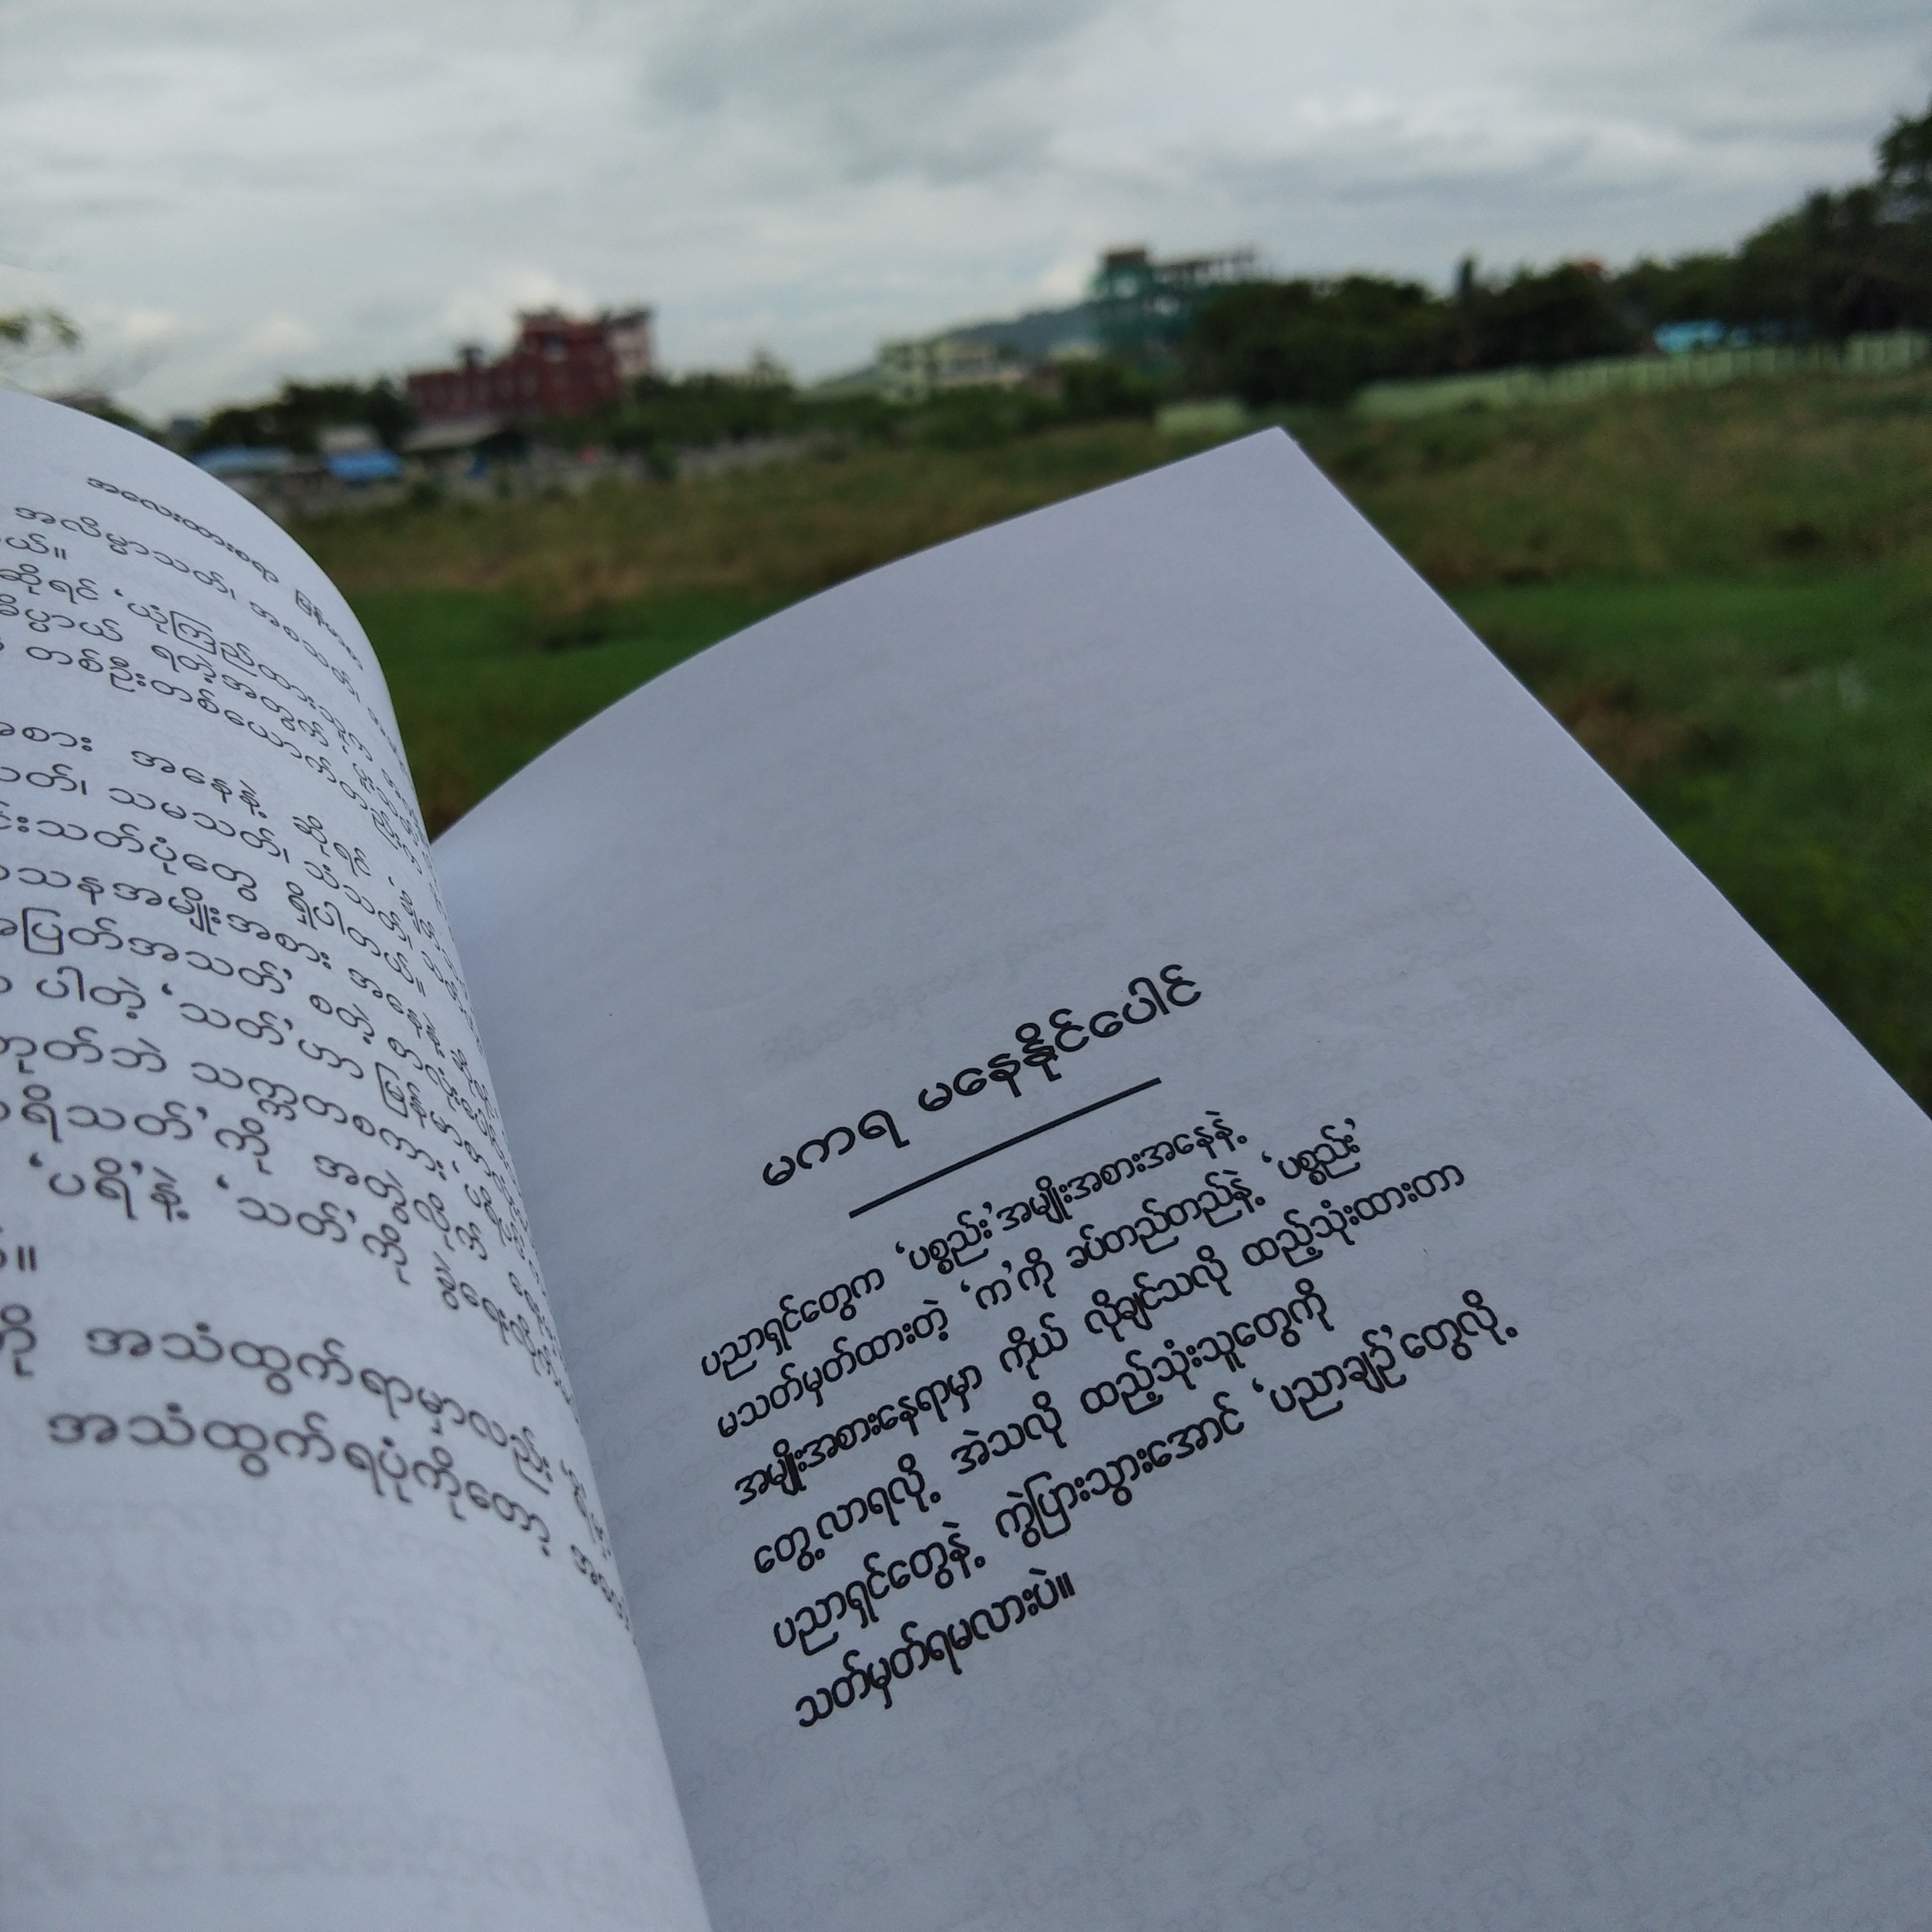 အလေးထားစရာ မြန်မာစာ
အလိမ္မာသတ်၊ အစသတ်၊
ယ်။
ဆိုရင် ‘ယုံကြည်ထားသူက
ဓိပ္ပာယ် ရတဲ့အတွက်
တစ်ဦးတစ်ယောက်တည်းက
အစား အနေနဲ့ ဆိုရင်
သတ်၊ သမသတ်၊ သံသတ်၊
င်းသတ်ပုံတွေ ရှိပါတယ်။
သနအမျိုးအစား အနေနဲ့
အပြတ်အသတ်’ စတဲ့ စာလုံး
ပါတဲ့ ‘သတ်’ဟာ မြန်မာစာ
ဟုတ်ဘဲ သက္ကတစကား
ရိသတ်’ကို အတွဲလိုက်
‘ပရိ’နဲ့ ‘သတ်’ကို ခွဲရေးလိုက်
်။
ကို အသံထွက်ရာမှာလည်း
အသံထွက်ရပုံကိုတော့
မကရ မနေနိုင်ပေါင်
ပညာရှင်တွေက ‘ပစ္စည်း’အမျိုးအစားအနေနဲ့
မသတ်မှတ်ထားတဲ့ ‘က’ကို ခပ်တည်တည်နဲ့ ‘ပစ္စည်း’
အမျိုးအစားနေရာမှာ ကိုယ် လိုချင်သလို ထည့်သုံးထားတာ
တွေ့လာရလို့ အဲသလို ထည့်သုံးသူတွေကို
ပညာရှင်တွေနဲ့ ကွဲပြားသွားအောင် ‘ပညာချဉ်’တွေလို့
သတ်မှတ်ရမလားပဲ။